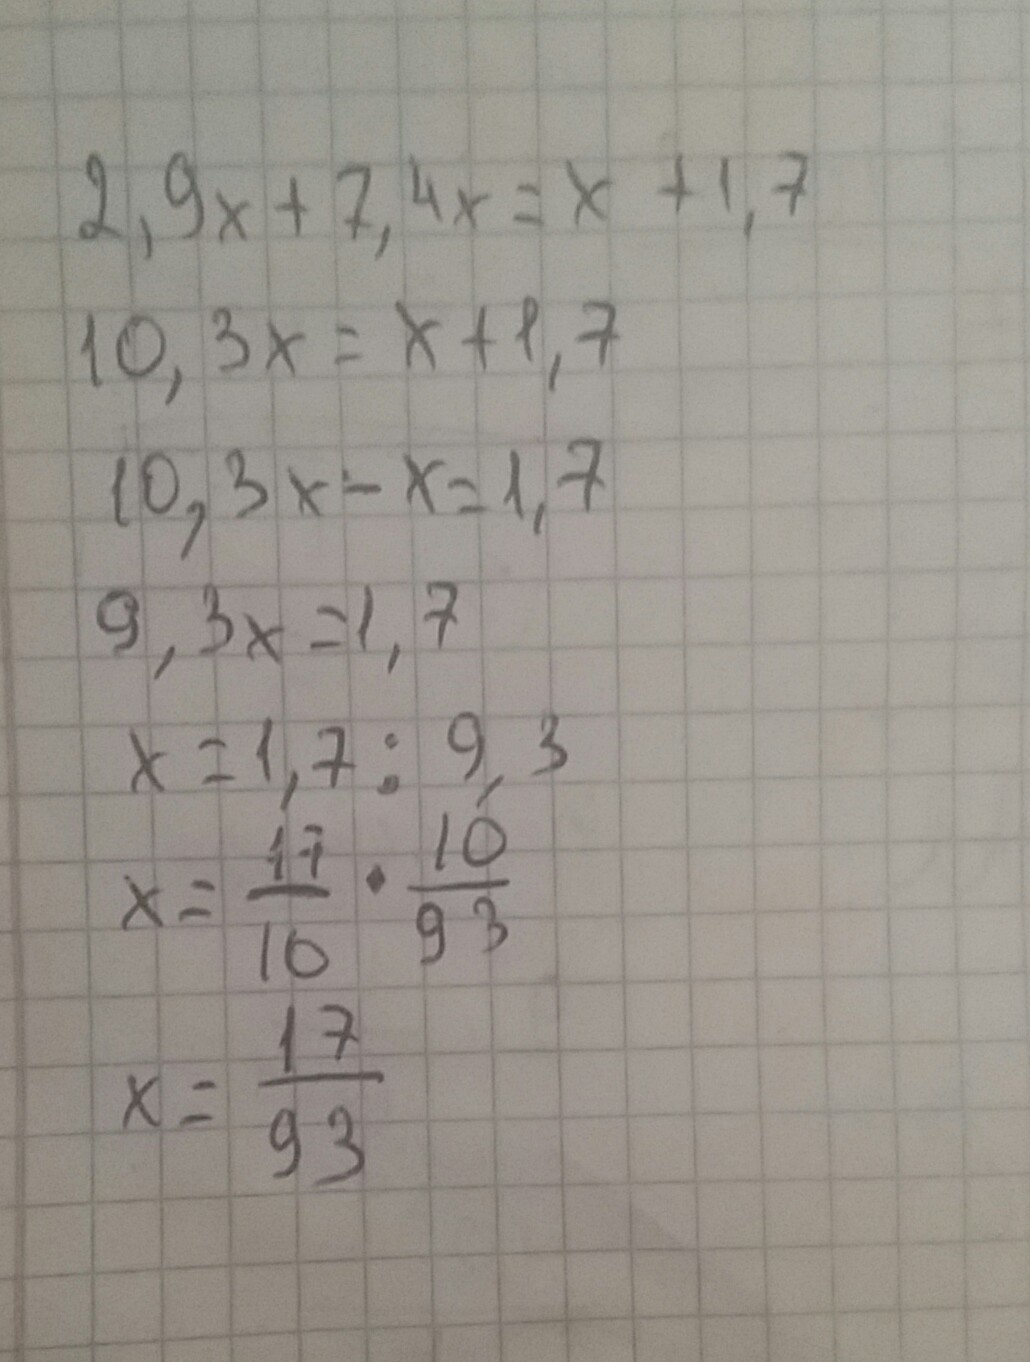 2,9x+7,4x=x +1,7
10,3x=x+1,7
10,3x-x=1,7
9,3x=1,7
x=1,7:9,3
x=17/10·10/93
x=17/93